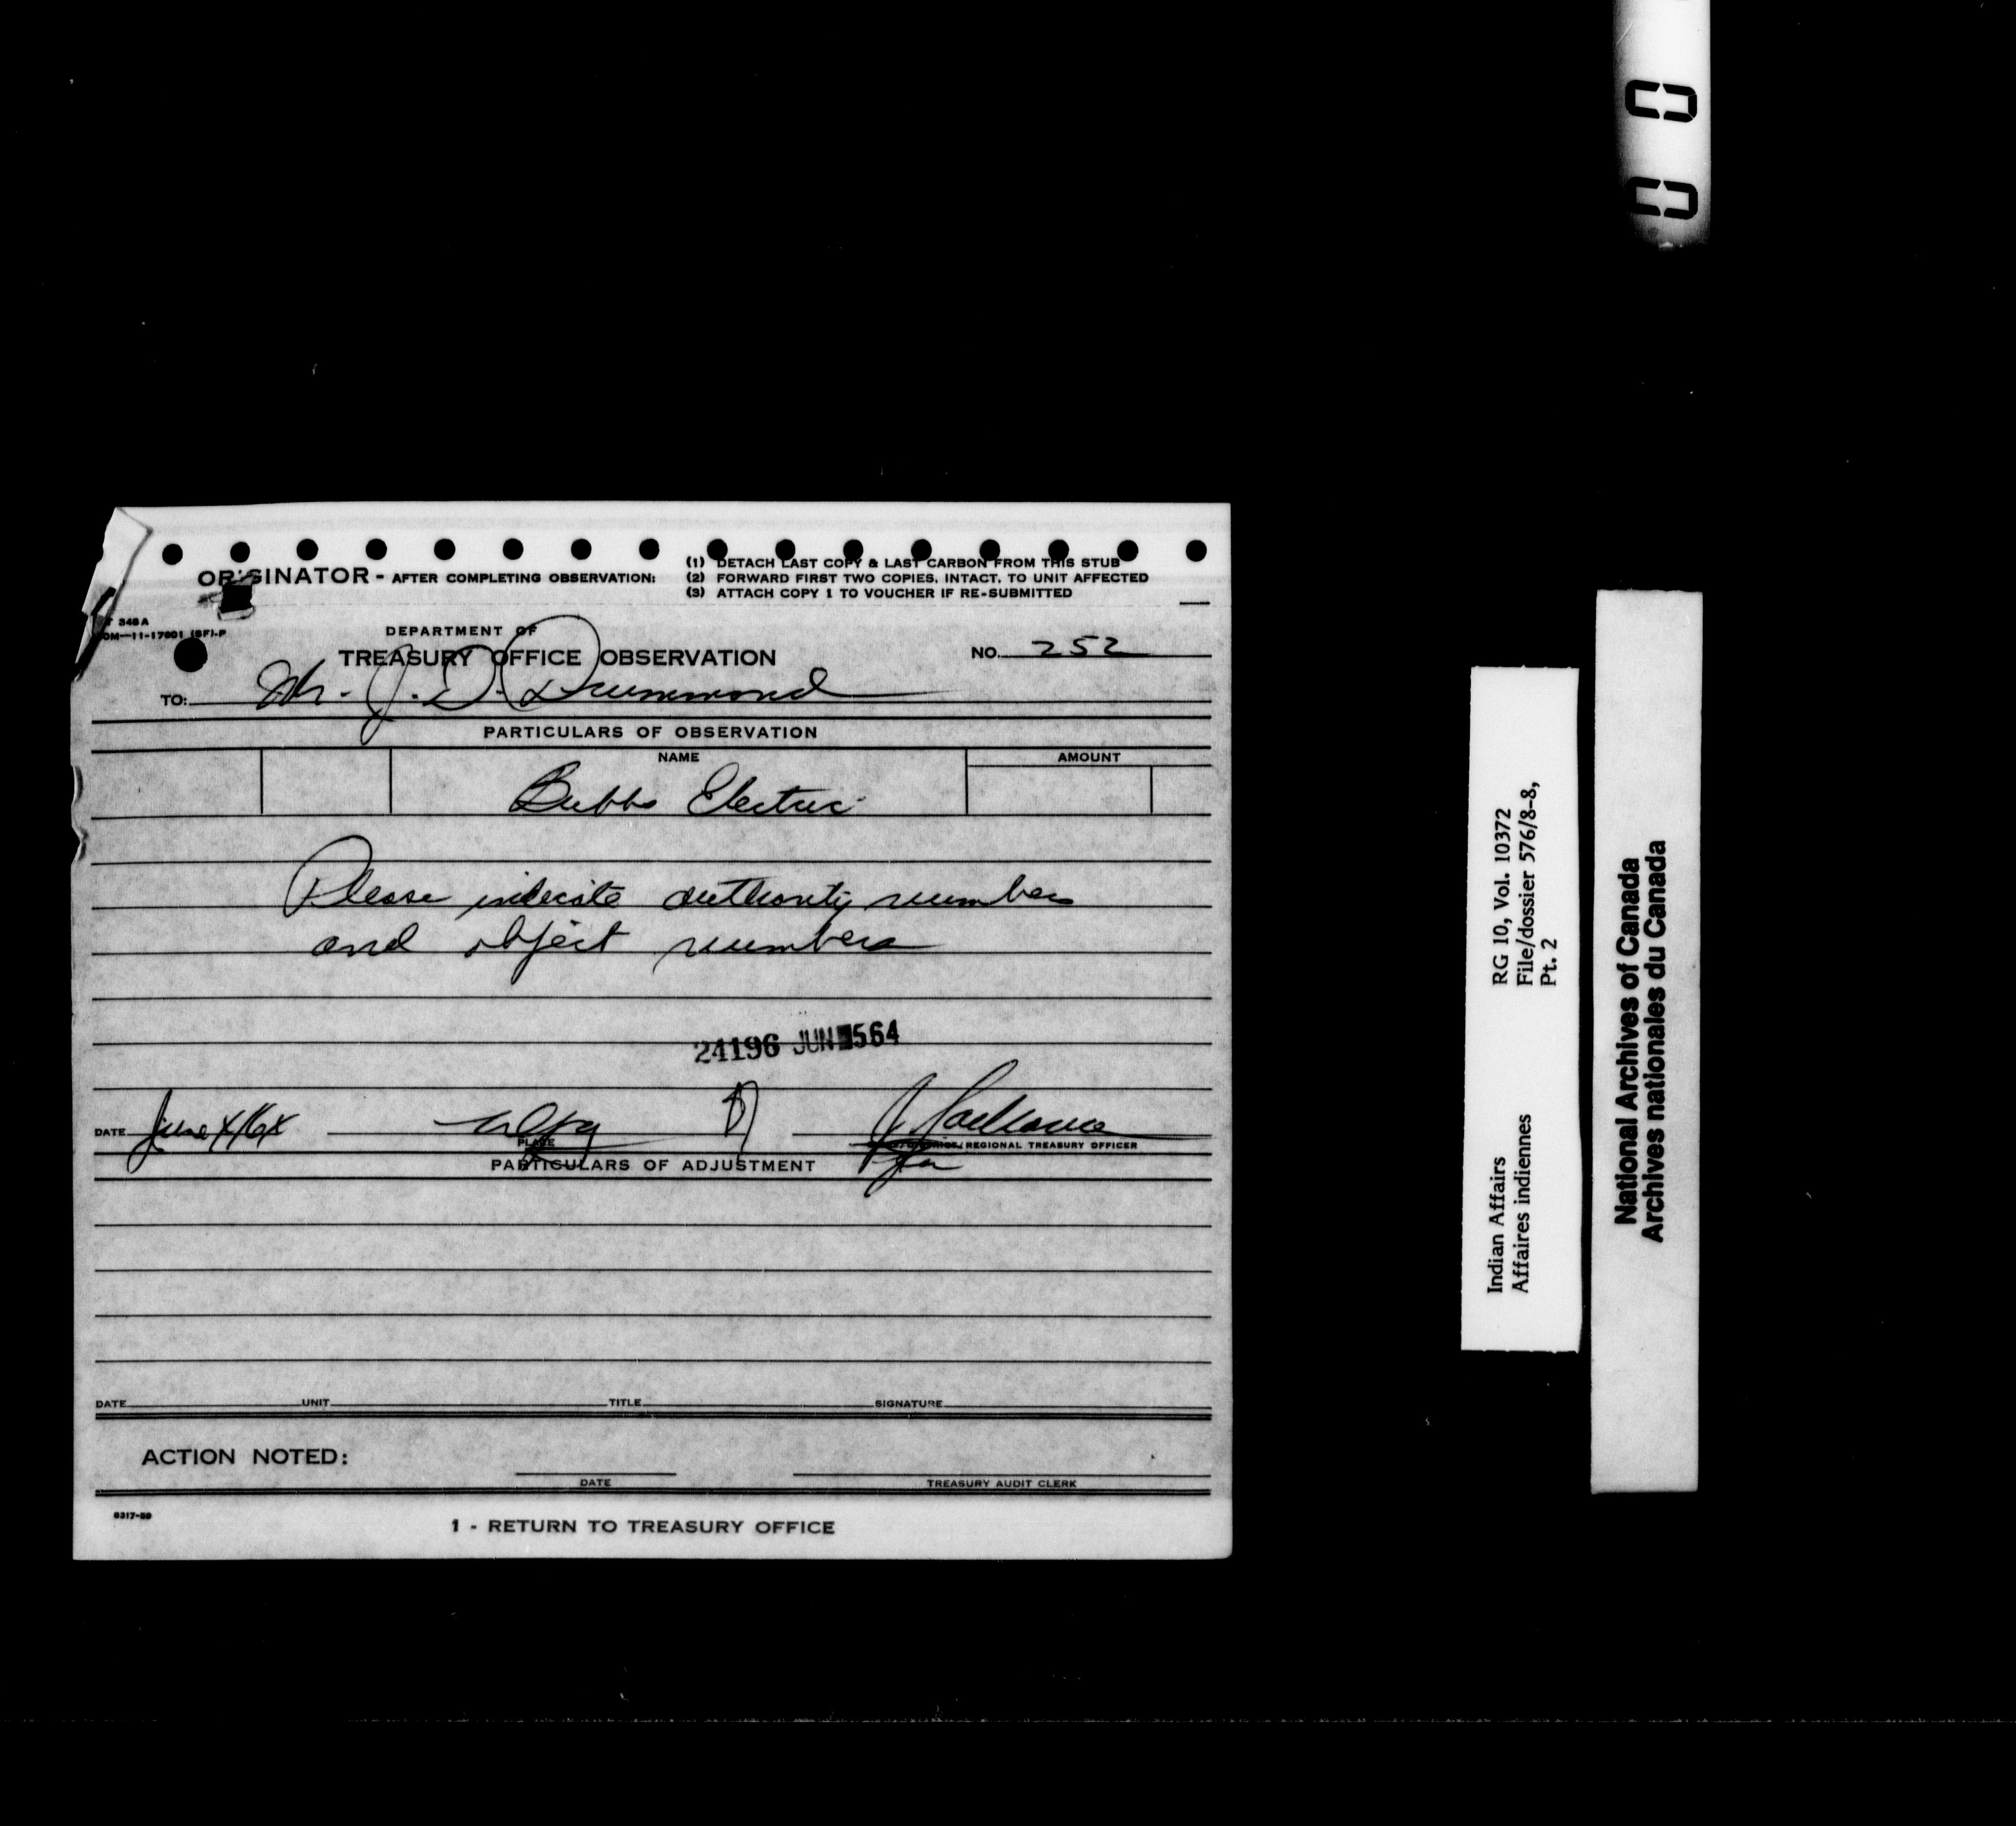 ORIGINATOR - AFTER COMPLETING OBSERVATION:
(1) DETACH LAST COPY & LAST CARBON FROM THIS STUB
(2) FORWARD FIRST TWO COPIES, INTACT, TO UNIT AFFECTED
(3) ATTACH COPY 1 TO VOUCHER IF RE-SUBMITTED
348A
0M-11-17601 (SF)-P
DEPARTMENT OF
TREASURY OFFICE OBSERVATION
NO. 252
TO: Mr. J. D. Drummond
PARTICULARS OF OBSERVATION
NAME
AMOUNT
Bubbs Electric
Please indicate authority numbers
and object numbers
24196 JUN 564
DATE June 4/64
PLACE
REGIONAL TREASURY OFFICER
PARTICULARS OF ADJUSTMENT
DATE UNIT TITLE SIGNATURE
ACTION NOTED:
DATE
TREASURY AUDIT CLERK
6317-59
1 - RETURN TO TREASURY OFFICE
Indian Affairs RG 10, Vol. 10372
Affaires indiennes File/dossier 576/8-8,
Pt. 2
National Archives of Canada
Archives nationales du Canada